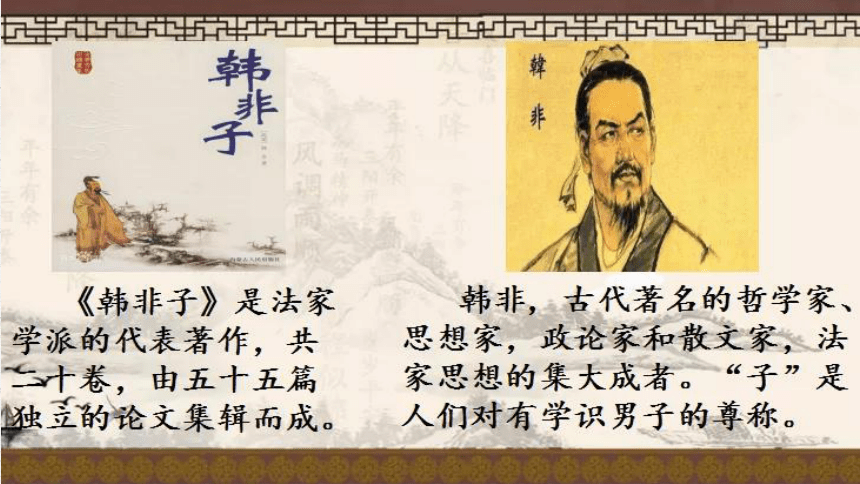 韩非子
内蒙古人民出版社
韓非
从天降
风调雨顺
年年有余
《韩非子》是法家
学派的代表著作，共
二十卷，由五十五篇
独立的论文集辑而成。
韩非，古代著名的哲学家、
思想家，政论家和散文家，法
家思想的集大成者。“子”是
人们对有学识男子的尊称。